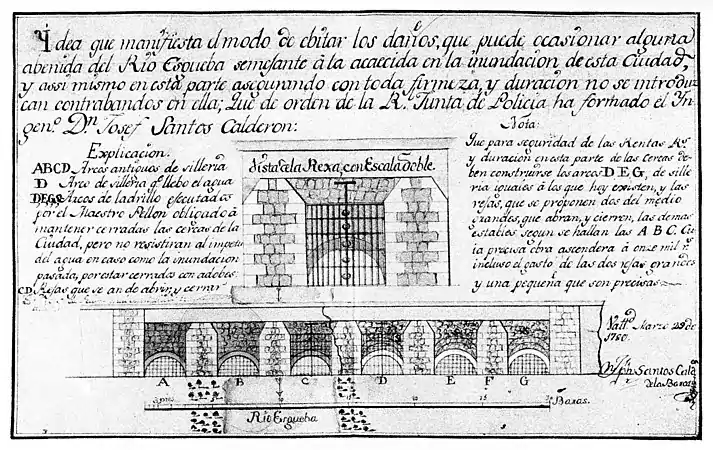 Idea que manifiesta el modo de ebitar los daños, que puede ocasionar alguna
abenida del Rio Esqueba semejante à la acaecida en la inundacion de esta Ciudad,
y assi mismo en esta parte asegurando con toda firmeza, y duracion no se introduz
can contrabandos en ella; Que de orden de la Rl. Junta de Policia ha formado el In
geno. Dn Josef Santos Calderon:
Explicacion.
ABCD Arcos antiguos de silleria
D Arco de silleria qe. llebo el agua
DEGF Arcos de ladrillo egecutados
por el Maestro Pellon obligado à
mantener cerradas las cercas de la
Ciudad, pero no resistiran al impetu
del agua en caso como la inundacion
pasada, por estar cerrados con adobes.
CD Rejas que se an de abrir, y cerrar
Vista de la Rexa, con Escala doble.
Nota:
Que para seguridad de las Rentas Rs.
y duracion en esta parte de las cercas de-
ben construirse los arcos DEG, de sille
ria iguales à los que hoy existen, y las
rejas, que se proponen dos del medio
grandes, que abran, y cierren, las demas
estables segun se hallan las A B C. Cu
ia precisa obra ascendera à onze mil rs
incluso el gasto de las dos rejas grandes
y una pequeña que son precisas
Valld. Marzo 29 de
1780.
Josph Santos Cald
de la Barca
A B C D E F G
5 10 15 Baras.
Rio Esgueba